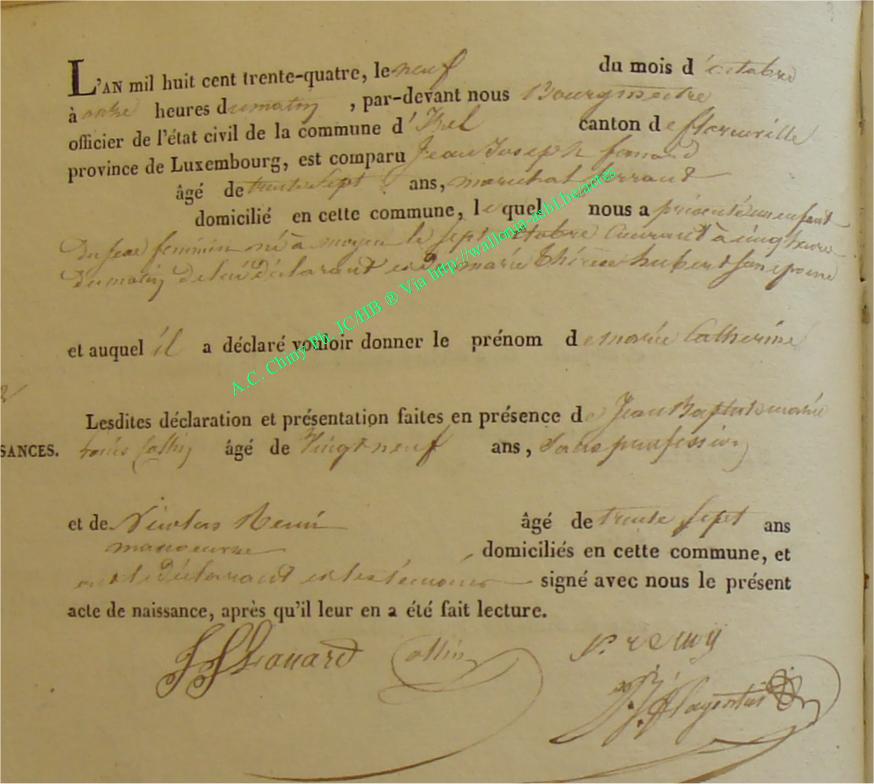 L'AN mil huit cent trente-quatre, le neuf du mois d'octobre
à onze heures du matin, par-devant nous Bourgmestre
officier de l'état civil de la commune d' canton de florenville
province de Luxembourg, est comparu Jean Joseph
âgé de trente sept ans, marechal ferrant
domicilié en cette commune, lequel nous a présenté un enfant
du sexe feminin né à moyen le sept octobre courant à cinq heures
du matin de lui déclarant et de marie thérèse hubert son épouse
A.C. Chiny Ph. JC/HB ® Via http://wallonia-asbl.be/actes
et auquel il a déclaré vouloir donner le prénom de marie Catherine
Lesdites déclaration et présentation faites en présence de Jean Baptiste marie
SANCES. louis Collin âgé de vingt neuf ans, sans profession
et de Nicolas Remi âgé de trente sept ans
manoeuvre domiciliés en cette commune, et
ont le déclarant et les témoins signé avec nous le présent
acte de naissance, après qu'il leur en a été fait lecture.
Collin N. remy